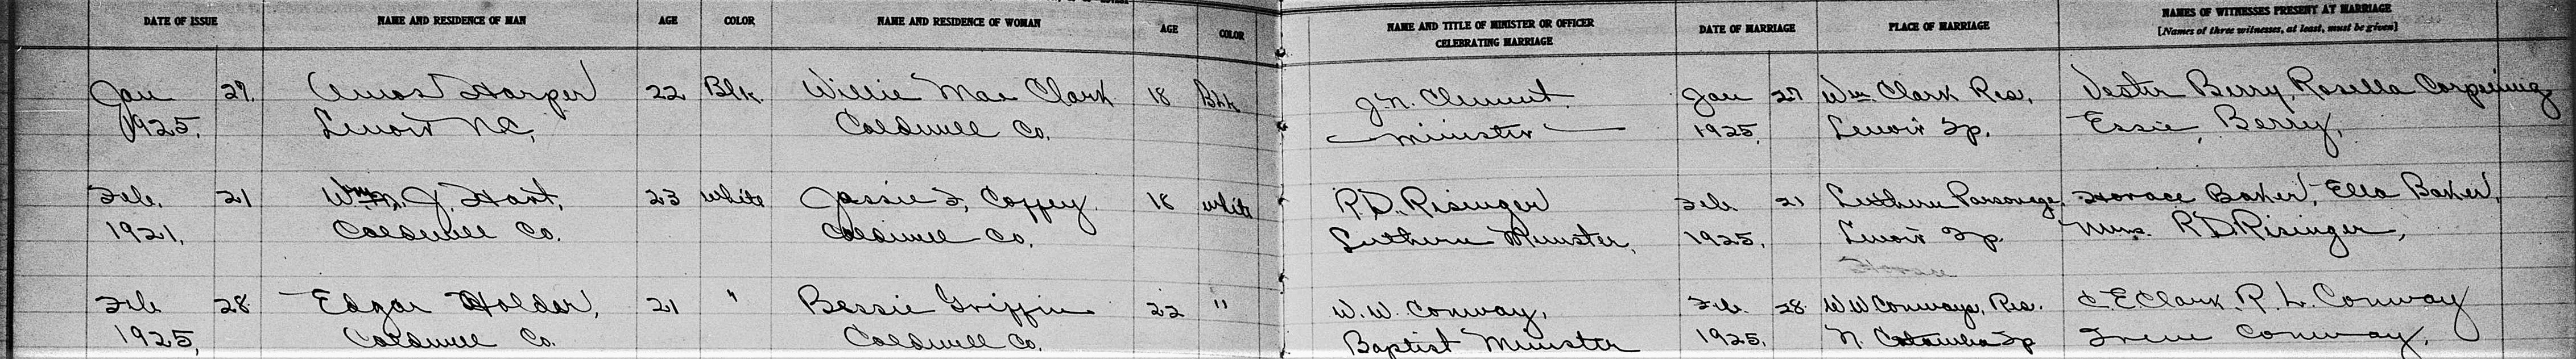 DATE OF ISSUE NAME AND RESIDENCE OF MAN AGE COLOR NAME AND RESIDENCE OF WOMAN AGE COLOR NAME AND TITLE OF MINISTER OR OFFICER CELEBRATING MARRIAGE DATE OF MARRIAGE PLACE OF MARRIAGE NAMES OF WITNESSES PRESENT AT MARRIAGE
[Names of three witnesses, at least, must be given]
Jan 27. Amos Harper 22 Blk. Willie Mae Clark 18 Blk J.N. Clement. Jan 27 Wm. Clark Res. Vester Berry, Rosella Corpening
1925. Lenoir N.C. Caldwell Co. Minister 1925. Lenoir Tp. Essie Berry,
Feb. 21 Wm. J. Hart, 23 white Jessie F. Coffey 18 white R.D. Risinger Feb. 21 Luthern Parsonage, Horace Baker, Ella Baker,
1921. Caldwell Co. Caldwell Co. Luthern Minister, 1925. Lenoir Tp. Mrs. R.D. Risinger,
Feb 28. Edgar Holder, 21 " Bessie Griffin 22 " W.W. Conway, Feb. 28 W W Conways, Res. C.E. Clark, R. L. Conway
1925, Caldwell Co. Caldwell Co. Baptist Minister 1925. N. Catawba Tp Irene Conway,